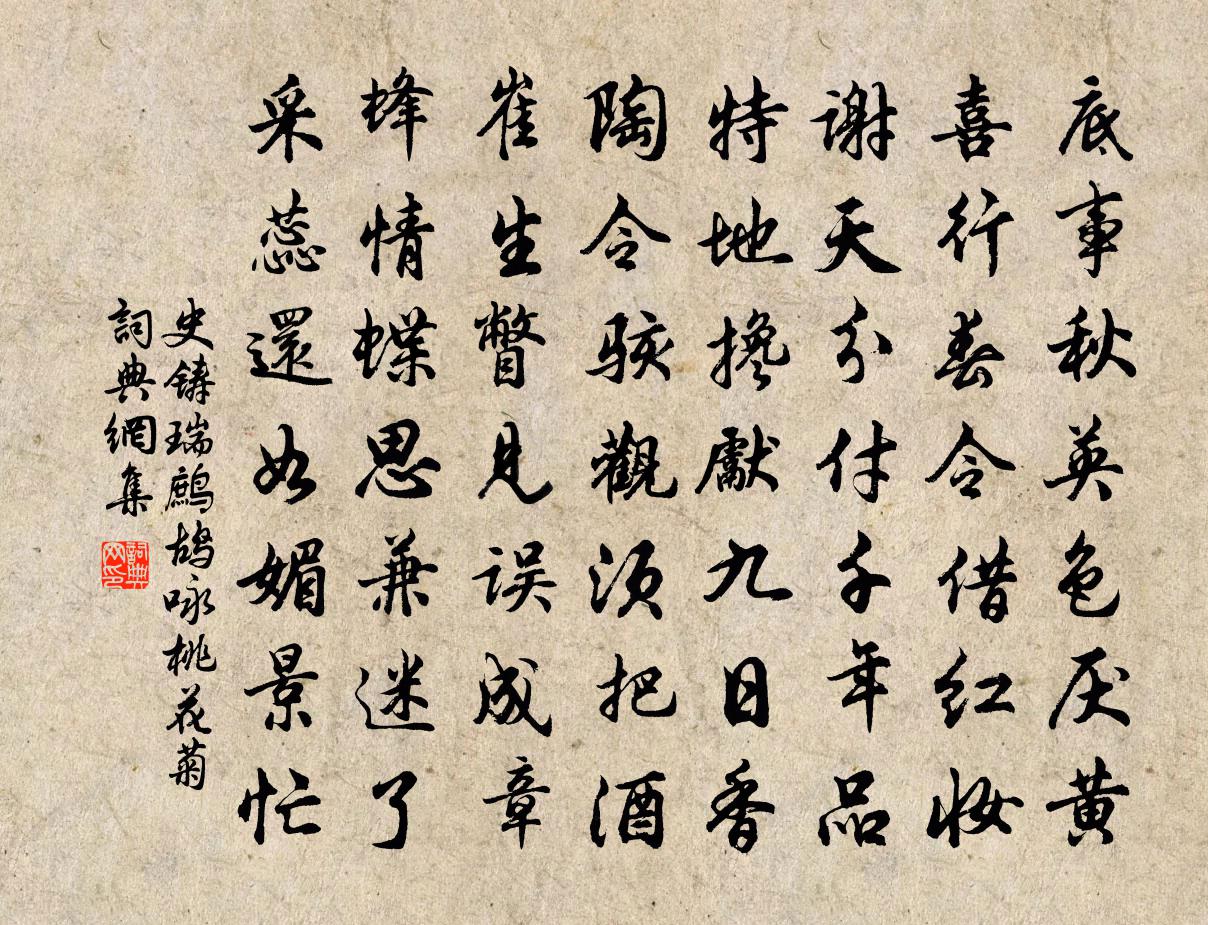 底事秋英色厌黄
喜行春令借红妆
谢天分付千年品
特地搀獻九日香
陶令骇觀须把酒
崔生瞥見误成章
蜂情蝶思兼迷了
采蕊還如媚景忙
史鑄瑞鷓鴣咏桃花菊
詞典網集
詞典